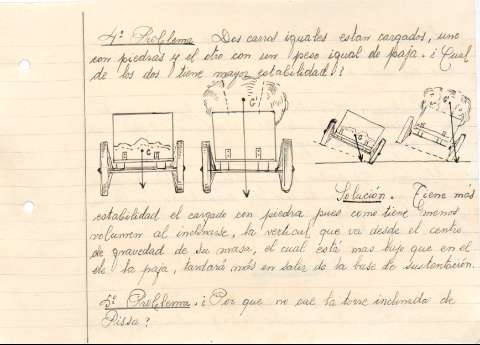 4º Problema Dos carros iguales estan cargados, uno
con piedras y el otro con un peso igual de paja. ¿Cual
de los dos tiene mayor estabilidad?
G
G
G
G
Solución. Tiene más
estabilidad el cargado con piedra pues como tiene menos
volumen al inclinarse, la vertical, que va desde el centro
de gravedad de su masa, el cual está mas bajo que en el
de la paja, tardará más en salir de la base de sustentación.
5º Problema. ¿Por que no cae la torre inclinada de
Pissa?